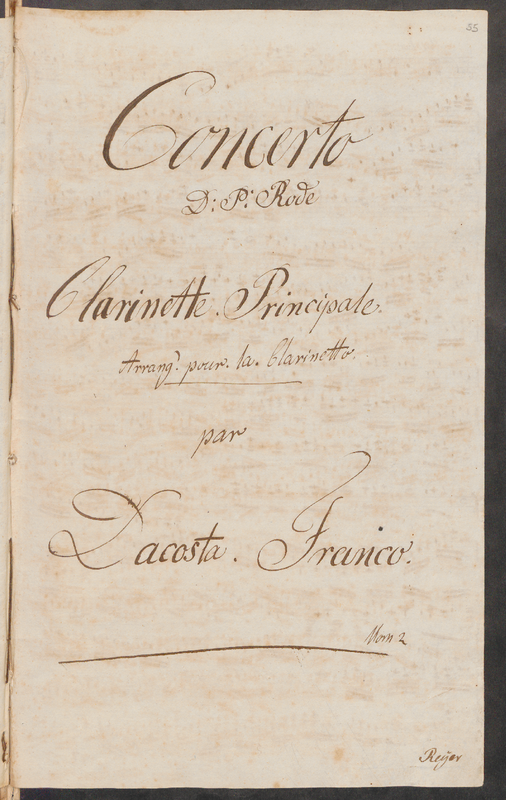 55
Concerto
D: P: Rode
Clarinette. Principale.
Arrang.t pour. la. Clarinetto.
par
Dacosta. Franco.
Nom. 2
Reÿer